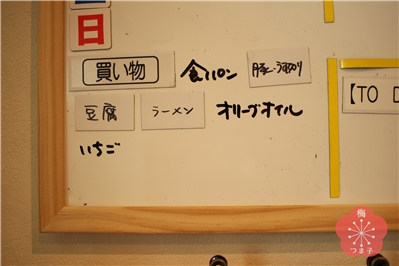 日
買い物 食パン 豚こま切り
豆腐 ラーメン オリーブオイル
いちご
【TO D
梅
つま子